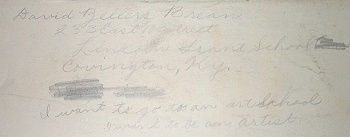 David Brean
East Street
Lincoln Grant School
Covington, Ky.
I want to go to an art School
I want to be an artist